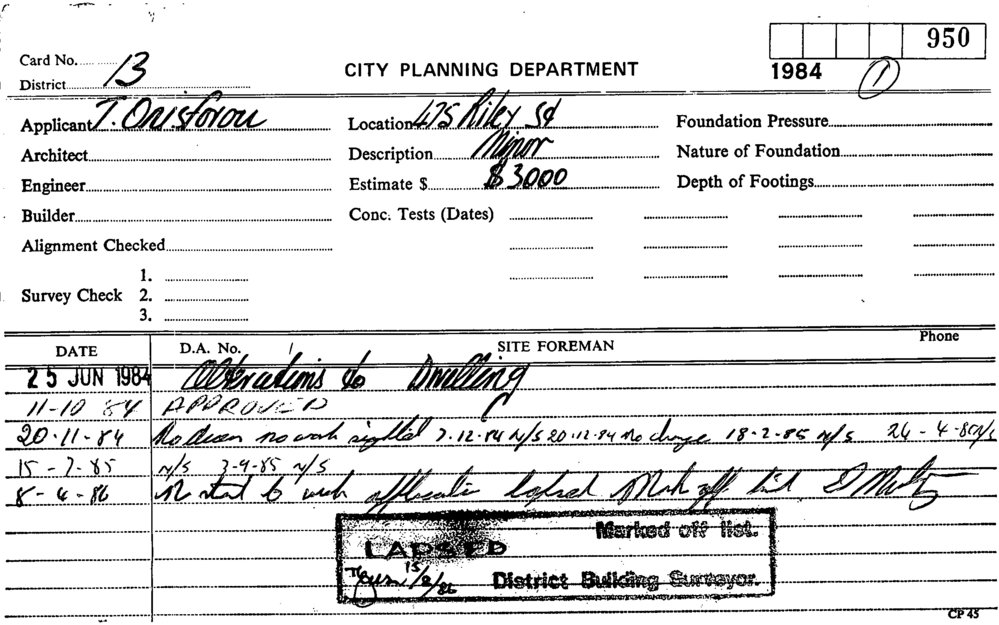 950
1984 1
Card No. 13
District
CITY PLANNING DEPARTMENT
Applicant T. Onisforou
Location 475 Riley St
Foundation Pressure
Architect
Description Minor
Nature of Foundation
Engineer
Estimate $ $3000
Depth of Footings
Builder
Conc. Tests (Dates)
Alignment Checked
1.
Survey Check 2.
3.
DATE D.A. No. SITE FOREMAN Phone
25 JUN 1984 Alterations to Dwelling
11-10 84 APPROVED
20-11-84 no work sighted 7.12.84 N/S 20.12.84 No change 18-2-85 N/S 24-4-85 N/S
15-7-85 N/S 3-9-85 N/S
8-4-86 No start to work application lapsed Mark off list
Marked off list.
LAPSED
15/8/86 District Building Surveyor.
CP 45